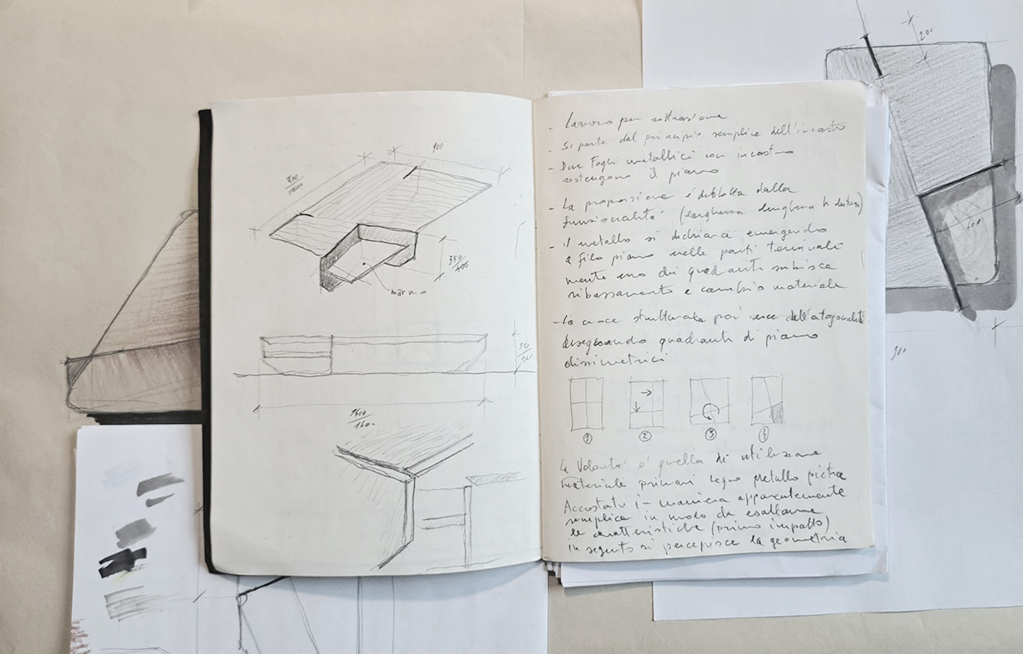 900
350
marmo
1600
- Lavoro per sottrazione
- Si parte dal principio semplice dell'incastro
- Due Fogli metallici con incastro
sostengono il piano
- La proporzione è dettata dalla
funzionalità (larghezza lunghezza h
- il metallo si dichiara emergendo
a filo piano nelle parti terminali
mentre uno dei quadranti subisce
ribassamento e cambio materiale
- La croce strutturale poi esce dell'ortogonalità
disegnando quadranti di piano
dissimetrici
① ② ③ ④
La Volontà è quella di utilizzare
materiale primari legno metallo pietra
Accostati in maniera apparentemente
semplice in modo da esaltarne
le caratteristiche (primo impatto)
in seguito si percepisce la geometria
200
100
900